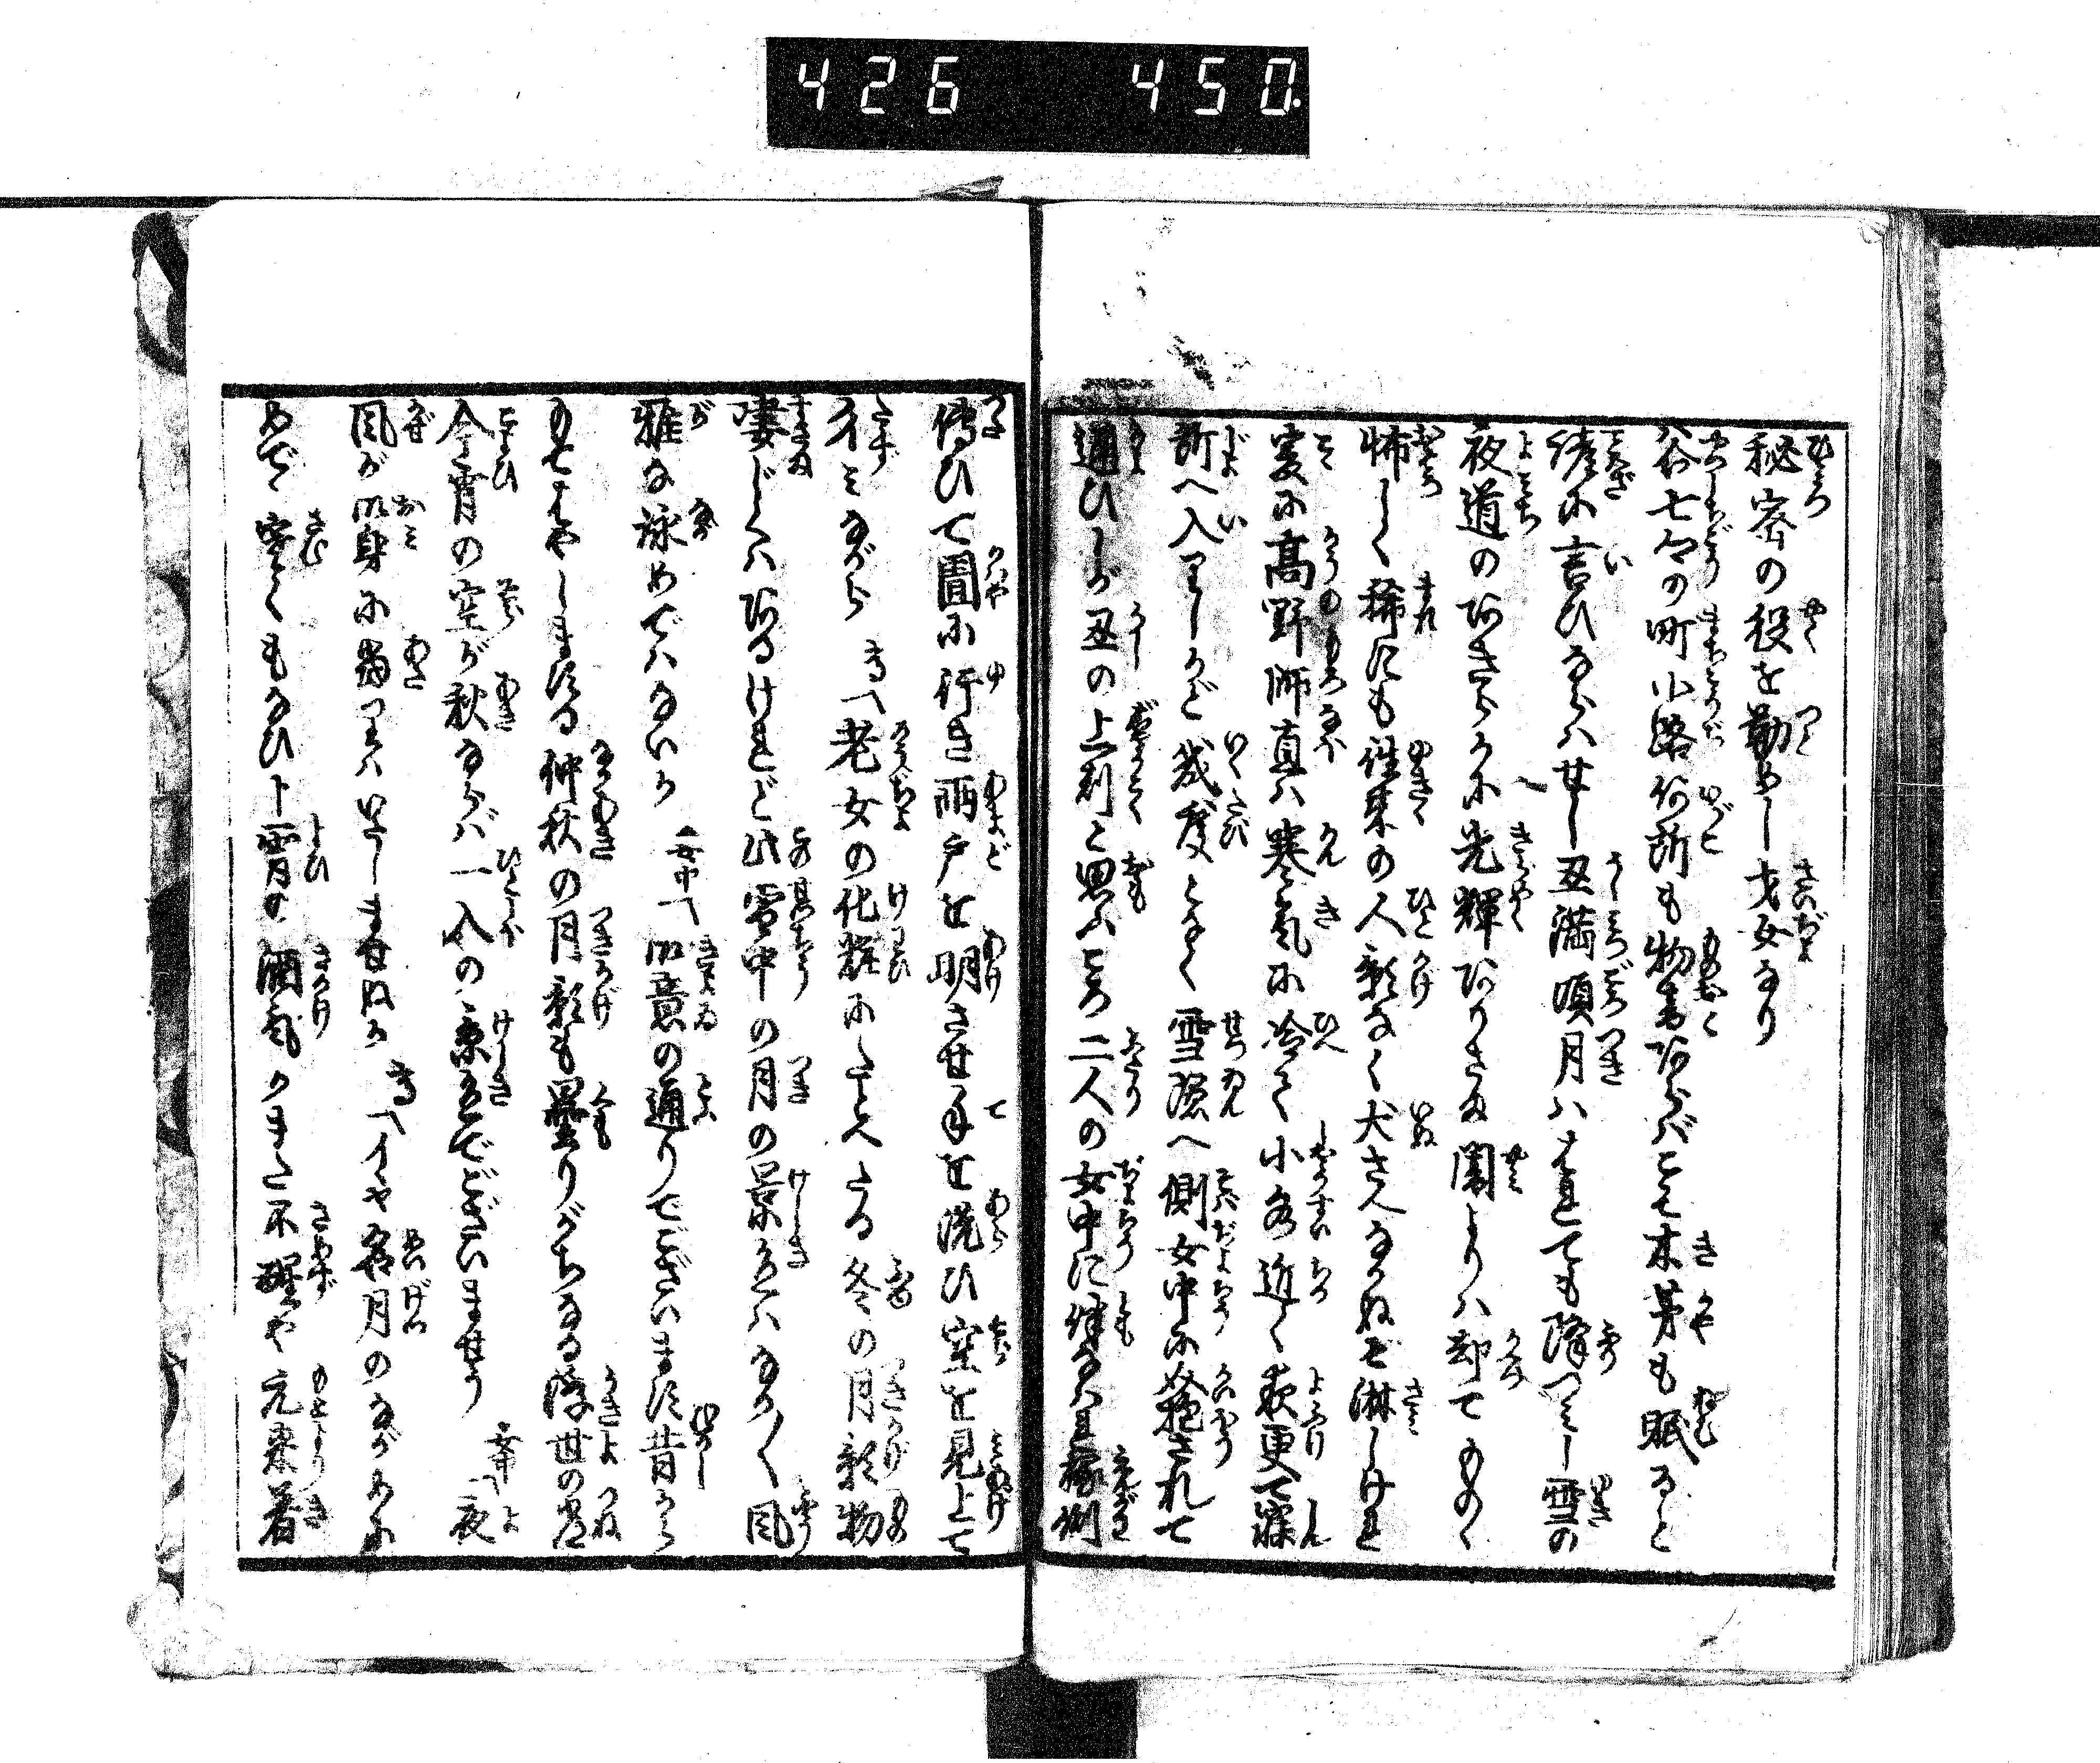 426 450
秘密の役を勤めし才女なり
谷七々の町小路何所も物音あらばこそ木茅も眠ると
諺に言ひならはせし丑満頃月ははれても降つみし雪の
夜道のあきらかに光輝ありさま闇よりは却てものく
怖しく稀にも往来の人影なく犬さへなかねば淋しけれ
爰に高野師直は寒気に冷て小水近く夜更て寝
所へ入りしかど幾度となく雪隠へ側女中に介抱されて
通ひしが丑の上刻と思ふころ二人の女中に伴なはれ椽側
伝ひて圊に行き雨戸を明させ手を洗ひ空を見上て
イミながら 高〽老女の化粧にたとへたる冬の月影物
凄じくはあるけれど此雪中の月の景色はなか〳〵風
雅な詠めではないか 女中〽御意の通りでございます昔から
もてはやしまする仲秋の月影も曇りがちなる浮世の常
今宵の空が秋ならば一入の景色でございませう 女中〽夜
風が御身に当りはいたしませぬか 高〽イヤ名月のながめに
めで寒くもないト宵の酒気がまだ不醒や元来着